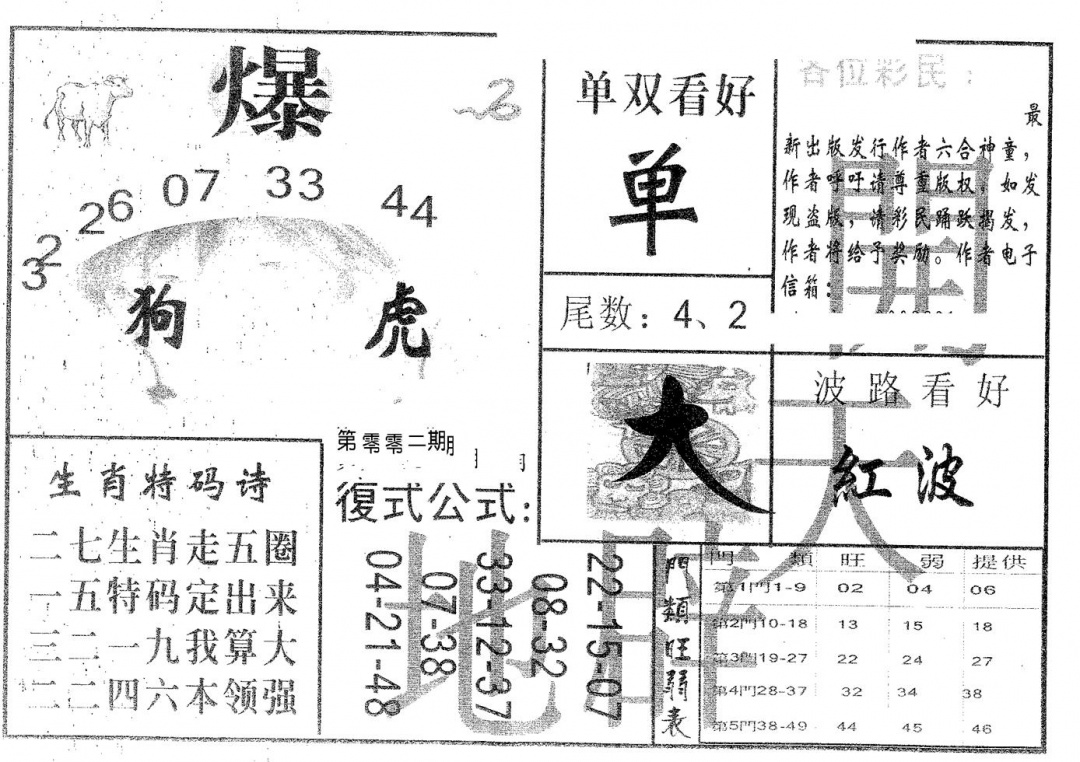 爆
32
26
07
33
44
狗
虎
单双看好
单
尾数：4、2
各位彩民：
最
新出版发行作者六合神童，
作者呼吁请尊重版权。如发
现盗版，情彩民踊跃揭发，
作者将给予奖励。作者电子
信箱：
大
波路看好
紅波
開天地
第零零二期
復式公式：
04-21-48
07-38
33-12-37
08-32
22-15-07
生肖特码诗
二七生肖走五圈
一五特码定出来
三二一九我算大
二二四六本领强
門類旺弱表
門類 旺 弱 提供
第1門1-9 02 04 06
第2門10-18 13 15 18
第3門19-27 22 24 27
第4門28-37 32 34 38
第5門38-49 44 45 46